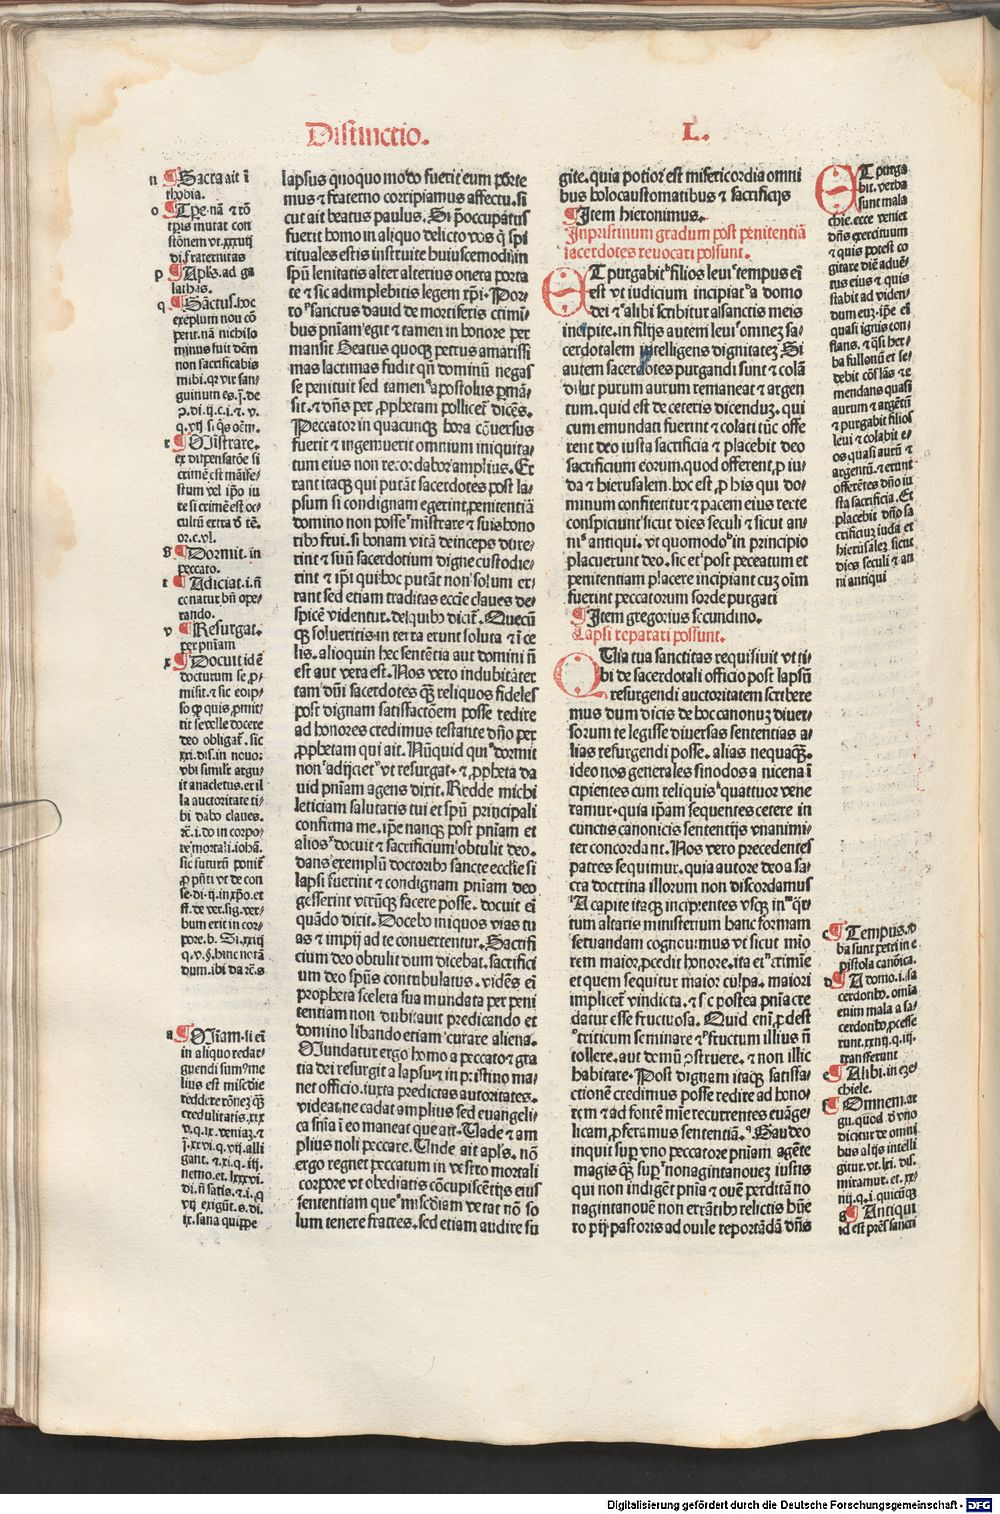 Distinctio.
L.
n ¶ Sacra ait ī
thobia.
o ¶ Tꝑe·nā ⁊ tō
tꝑis mutat con
stōnem vt.xxvij
di.fraternitas
p ¶ Apl̄s.ad ga
lathas.
q ¶ Sāctus.hoc
exēplum nou cō
petit.nā nichilo
minus fuit dēm
non sacrificabis
mihi.qꝛ vir san/
guinum es.
r ¶ Ministrare.
ex dispensatōe si
crimē est māife/
stum vel ip̄o iu
re si crimē est oc/
cultū extra d̄ tē.
or.c.vl.
s ¶ Dormit.in
peccato.
t ¶ Adiciat.i.n̄
conatur bn̄ ope/
rando.
v ¶ Resurgat.
per pn̄iam
x ¶ Docuit idē
docturum se ꝓ/
misit.⁊ sic eoip/
so ꝙ quis ꝓmit/
tit se velle docere
deo obligat̄.sic
xxi.dis.in nouo
vbi simil'r argu/
it anacletus.et il
la auctoritate ti/
bi dabo claues.
⁊c̄.i.do in corpo/
re mortali.iohā.
sic futurū ponit̄
ꝓ pn̄ti vt de con
se.di.ij.in xp̄o.et
ff.de ver.sig.ver/
bum erit in cor/
pore.b. Si.xxiij
q.v.§.hinc notā
dum.ibi da ⁊c̄.s
a ¶ Misam.si eī
in aliquo redar/
guendi sum⁹me
lius est miscd̄ie
reddere rōnez ꝙ̄
crudelitatis.xix
v.q.ix.veniaz.⁊
ī.xxvi.q.vij.alli
gant.⁊.xi.q.iij.
nemo.et.lxxxvi.
di.n̄ satis.⁊.i.q
vij exigūt.s.di.
ix.sana quippe
lapsus quoquo modo fuerit eum porte
mus ⁊ fraterno corripiamus affectu.si
cut ait beatus paulus.Si p̄occupatus
fuerit homo in aliquo delicto vos q̄ spi
rituales estis instruite huiuscemodi in
spū lenitatis alter alterius onera porta
te ⁊ sic adimplebitis legem xp̄i.Por/
ro sanctus dauid de mortiferis crimi/
bus pn̄iam egit ⁊ tamen in honore per
mansit Beatus quoqꝫ petrus amarissi
mas lacrimas fudit qn̄ dominū negas
se penituit sed tamen apostolus ꝑmā/
sit.⁊ dn̄s per ꝓphetam pollicet̄ dicēs.
Peccator in quacunqꝫ hora cōuersus
fuerit ⁊ ingemuerit omnium iniquita/
tum eius non recordabor amplius.Er
rant itaqꝫ qui putāt sacerdotes post la/
psum si condignam egerint penitentiā
domino non posse ministrare ⁊ suis hono
ribꝰ frui.si bonam vitā deinceps duxe/
rint ⁊ suū sacerdotium digne custodie/
rint ⁊ ip̄i qui hoc putāt non solum er/
rant sed etiam traditas eccīe claues de/
spicē videntur.de quibꝰ dicit̄. Quecū
qꝫ solueritis in terra erunt soluta ⁊ ī ce
lis.alioquin hec sentētia aut domini n̄
est aut vera est.Nos vero indubitāter
tam dn̄i sacerdotes ꝙ̄ reliquos fideles
post dignam satisfactōem posse redire
ad honores credimus testante dn̄o per
ꝓphetam qui ait.Nūquid qui dormit
non adijciet vt resurgat.⁊ ꝓpheta da
uid pn̄iam agens dixit.Redde michi
leticiam salutaris tui et spū principali
confirma me.ip̄e nanqꝫ post pn̄iam et
alios docuit ⁊ sacrificium obtulit deo.
dans exemplū doctoribꝰ sancte ecclīe si
lapsi fuerint ⁊ condignam pn̄iam deo
gesserint vtrūqꝫ facere posse. docuit eī
quādo dixit. Docebo iniquos vias tu
as ⁊ impij ad te conuertentur. Sacrifi
cium deo obtulit dum dicebat.sacrifici
um deo spūs contribulatus. vidēs eī
propheta scelera sua mundata per peni
tentiam non dubitauit predicando et
domino libando etiam curare aliena.
Mundatur ergo homo a peccato ⁊ gra
tia dei resurgit a lapsu ⁊ in pristino ma/
net officio.iuxta predictas autoritates.
videat ne cadat amplius sed euangeli/
ca sn̄ia ī eo maneat que ait.Uade ⁊ am
plius noli peccare. Unde ait apl̄s. nō
ergo regnet peccatum in vestro mortali
corpore vt obediatis cōcupiscētijs eius
sententiam que miscd̄iam vetat nō so
lum tenere fratres.sed etiam audire fu
gite.quia potior est misericordia omni
bus holocaustomatibus ⁊ sacrificijs
¶ Item hieronimus.
In pristinum gradum post penitentiā
sacerdotes reuocari possunt.
Et purgabit filios leui tempus eī
est vt iudicium incipiat a domo
dei ⁊ alibi scribitur a sanctis meis
incipite.in filijs autem leui omnez sa/
cerdotalem intelligens dignitatez Si
autem sacerdotes purgandi sunt ⁊ colā
di.vt purum aurum remaneat ⁊ argen
tum.quid est de ceteris dicenduz.qui
cum emundati fuerint ⁊ colati tūc offe
rent deo iusta sacrificia ⁊ placebit deo
sacrificium eorum.quod offerent ꝓ iu/
da ⁊ hierusalem.hoc est ꝓ his qui do/
minum confitentur ⁊ pacem eius recte
conspiciunt sicut dies seculi ⁊ sicut an/
ni antiqui. vt quomodo in principio
placuerunt deo.sic et post peccatum et
penitentiam placere incipiant cuz oīm
fuerint peccatorum sorde purgati
¶ Item gregorius secundino.
Lapsi reparari possunt.
Qlia tua sanctitas requisiuit vt ti/
bi de sacerdotali officio post lapsū
resurgendi auctoritatem scribere
mus dum dicis de hoc canonuz diuer/
sorum te legisse diuersas sententias a/
lias resurgendi posse. alias nequaqꝫ.
ideo nos generales sinodos a nicena ī
cipientes cum reliquis quattuor vene
ramur.quia ip̄am sequentes cetere in
cunctis canonicis sententijs vnanimi/
ter concordant.Nos vero precedentes
patres sequimur.quia autore deo a sa/
cra doctrina illorum non discordamus
A capite itaqꝫ incipientes vsqꝫ in q̄r/
tum altaris ministerium hanc formam
seruandam cognouimus vt sicut mīo
rem maior p̄cedit honore.ita ei crimīe
et quem sequitur maior culpa. maiori
implicet̄ vindicta.⁊ sic postea pn̄ia cre
datur esse fructuosa. Quid eni ꝓdest
triticum seminare ⁊ fructum illius n̄
tollere.aut domū ꝯstruere.⁊ non illic
habitare.Post dignam itaqꝫ satisfa/
ctionē credimus posse redire ad hono/
rem ⁊ ad fontē mīe recurrentes euāge/
licam ꝓferamus sententiā. Gaudeo
inquit super vno peccatore pn̄iam agēte
magis ꝙ̄ super nonagintanouez iustis
qui non indigēt pn̄ia ⁊ ouē perditā no
nagintanouē non errātibꝰ relictis hūe
ro pij pastoris ad ouile reportādā dn̄s
Et purga
bit. verba
sunt mala
chie.ecce veniet
dn̄s exercituum
⁊ quis potest co
gitare diē aduē/
tus eius ⁊ quis
stabit ad viden/
dum euz.ip̄e eī
quasi ignis con/
flans.⁊ q̄si her/
ba fullonū et se/
debit cōflās ⁊ e
mendans quasi
aurum ⁊ argētū
⁊ purgabit filios
leui ⁊ colabit e/
os quasi aurū ⁊
argentū.⁊ erunt
offerētes dn̄o iu
sta sacrificia.Et
placebit dn̄o sa
crificiuz iuda et
hierusalez sicut
dies seculi ⁊ an
ni antiqui
c ¶ Tempus.v̄
ba sunt petri in e
pistola canōica.
d ¶ A domo.i.sa
cerdonbꝰ.omīa
enim mala a sa/
cerdonbꝰ ꝓcesse
runt.xxiiij.q.iij.
transferunt
e ¶ Alibi.in eze/
chiele.
f ¶ Omnem.ar
gu.quod d̄ vno
dicitur de omni
bus alijs intelli
gitur.vt.lxi.dis.
miramur.et.xx/
iiij.q.i.quicūqꝫ
g ¶ Antiqui
id est pres sancti
Digitalisierung gefördert durch die Deutsche Forschungsgemeinschaft - DFG